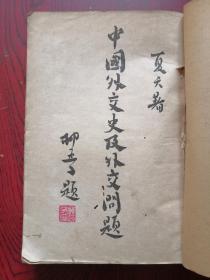 夏天著
中國外交史及外交問題
柳亞子題